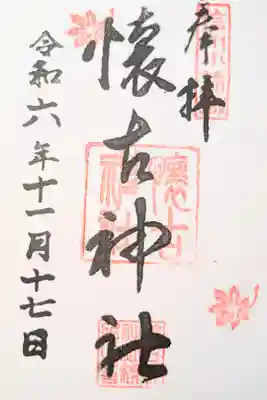 奉拝
懐古神社
令和六年十一月十七日
懐古
神社